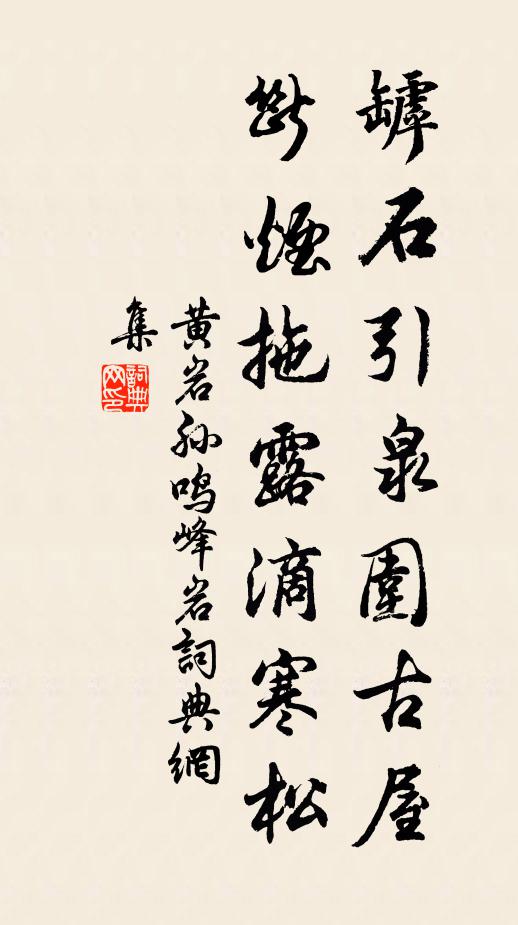 罅石引泉圍古屋
斷煙拖露滴寒松
黄岩孙鸣峰岩詞典網
集
詞典網印